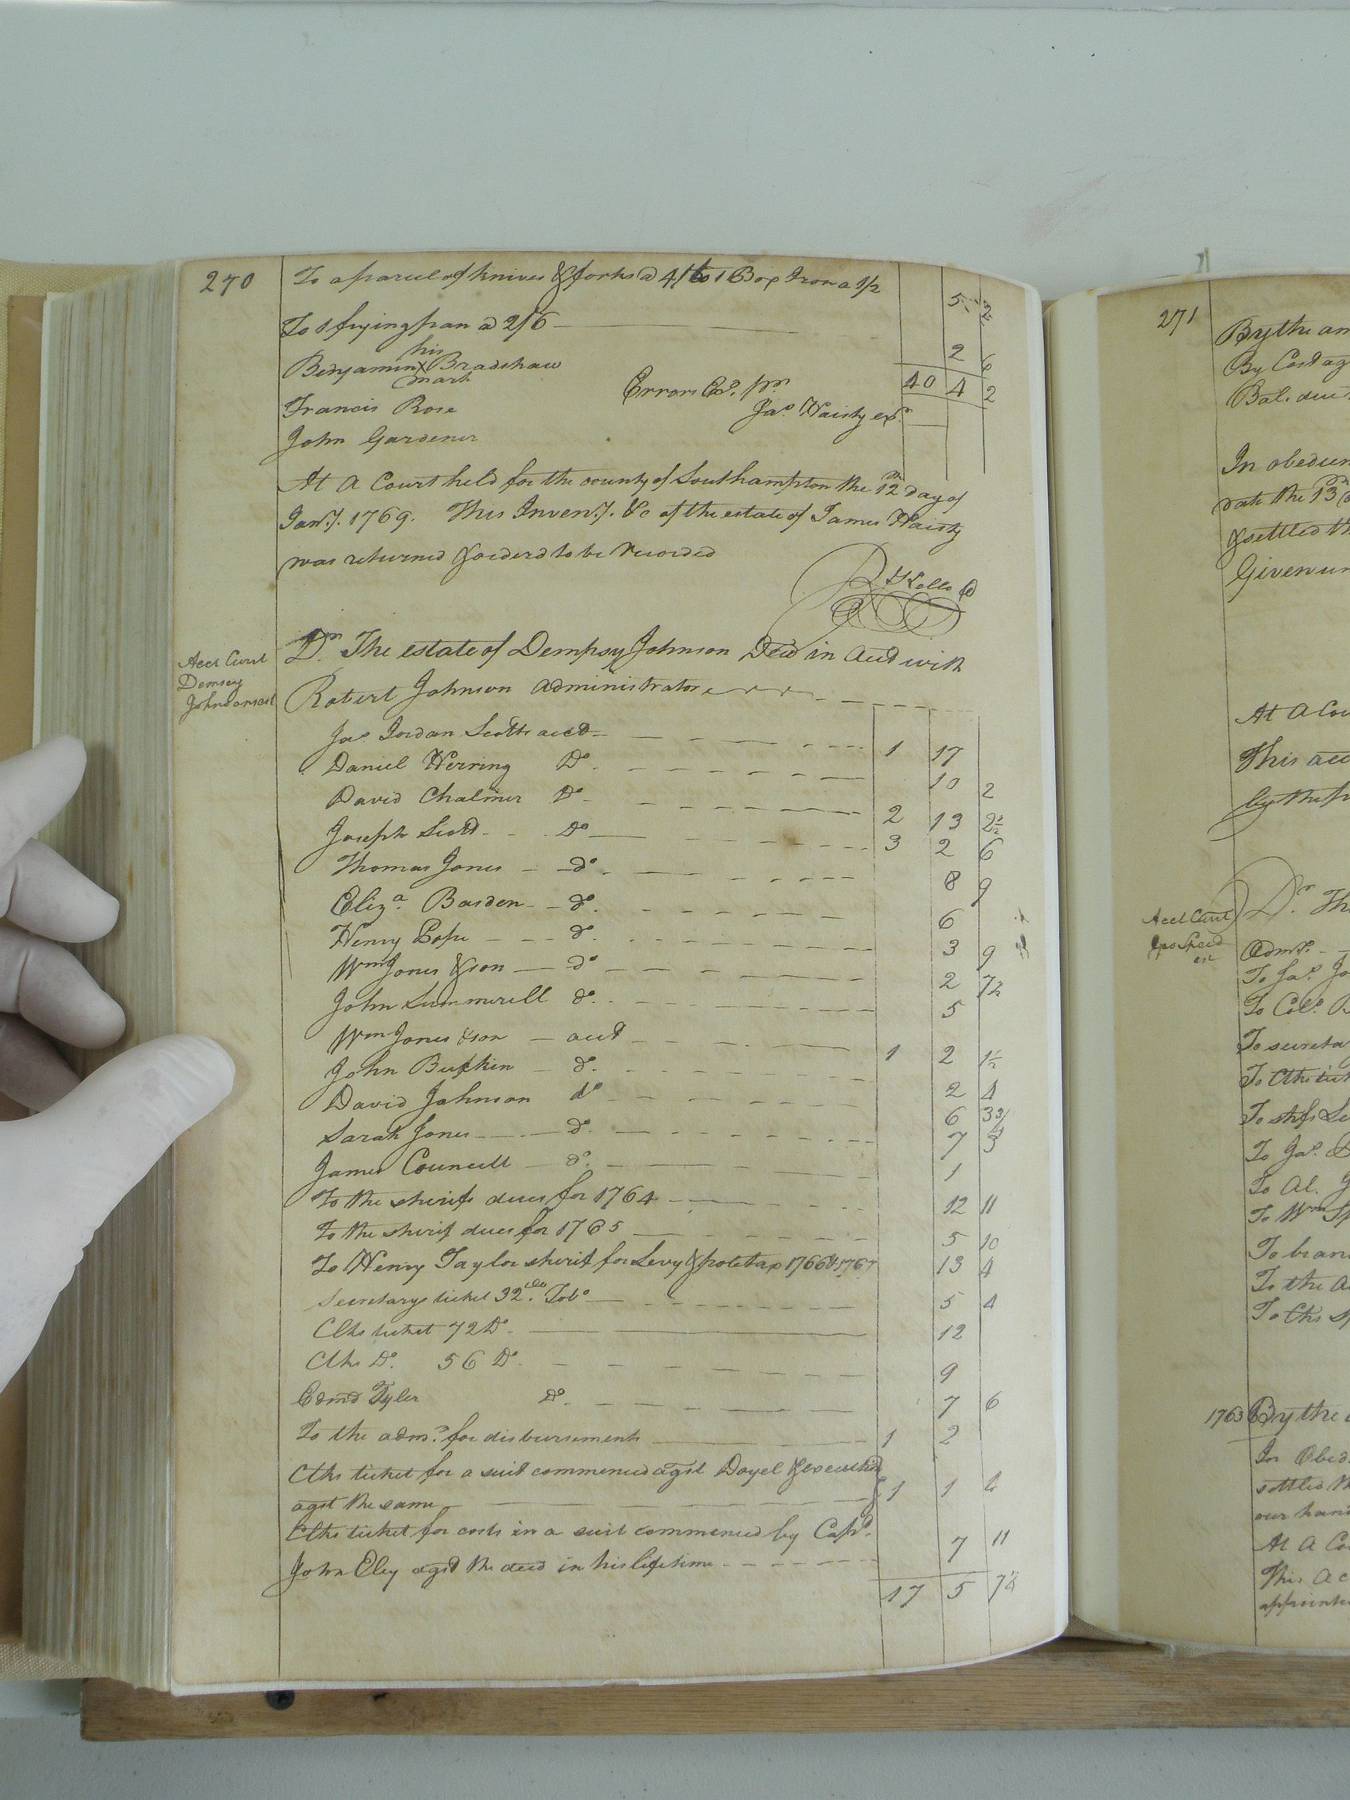 270
To a parcel of knives & forks @ 4/ to 1 Box Iron a 1/2 5 2
To 1 frying pan @ 2/6 2 6
his
Benjamin X Bradshaw
mark
40 4 2
Errors Ex.d pr.
Francis Rose
Jas. Waisty exr.
John Gardener
At A Court held for the county of Southampton the 12th day of
Jany. 1769. This Inveny. &c of the estate of James Waisty
was returned & orderd to be recorded
R Kello C
Acct Curt
Demsey
Johnson est
Dr. The estate of Dempsy Johnson Decd in acct with
Robert Johnson administrator
Jas. Jordan Scotts acct 1 17
Daniel Herring Do. 10 2
David Chalmer Do. 2 13 2½
Joseph Scott Do 3 2 6
Thomas Jones do. 8 9
Eliza. Barden do. 6
Henry Pope do. 3 9
Wm Jones & son do 2 7½
John Summerell do. 5
Wm Jones & son acct 1 2 1½
John Bufkin do. 2 4
David Johnson do 6 3¾
Sarah Jones do. 7 3
James Councill do. 1
To the sherifs dues for 1764 12 11
To the sherif dues for 1765 5 10
To Henry Taylor sherif for Levy & pole tax 1766 & 1767 13 4
Secretarys ticket 32 lb. Tobo 5 4
Clks ticket 72 Do. 12
Clks Do. 56 Do. 9
Edmd Tyler Do. 7 6
To the admr. for disbursements 1 2
Clks ticket for a suit commenced agst Doyel & execution
agst the same 1 1 4
Clks ticket for costs in a suit commenced by Capt.
John Eley agst the decd in his lifetime 7 11
17 5 7¼
271
By the am
By Cost ag
Bal. due
In obedien
date the 13
& settled th
Given un
At A Cou
This acc
by the
Acct Curt
Dr. Th
Admr.
To Jas. Jo
To Colo. B
To secreta
To Clks tick
To shfs
To Jas.
To Al.
To Wm Sp
To bran
To the a
To Clks
1763 By the
In Obed
settled th
our hand
At A Co
This Ac
appointe